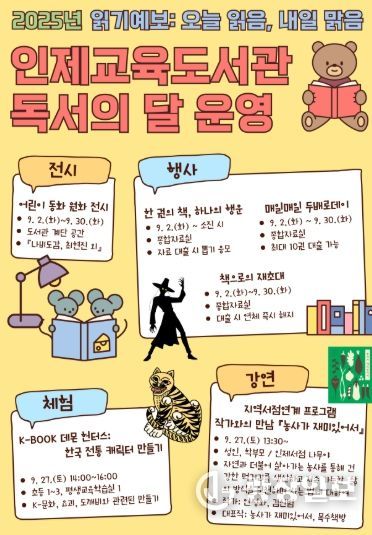 2025년 읽기예보: 오늘 읽음, 내일 맑음
인제교육도서관
독서의 달 운영
전시
어린이 동화 원화 전시
9. 2.(화)~9. 30.(화)
도서관 계단 공간
『나비도감, 최현진 외』
행사
한 권의 책, 하나의 행운
9. 2.(화) ~ 소진 시
종합자료실
자료 대출 시 뽑기 응모
매일매일 두배로데이
9. 2.(화) ~ 9. 30.(화)
종합자료실
최대 10권 대출 가능
책으로의 재초대
9. 2.(화)~9. 30.(화)
종합자료실
대출 시 연체 즉시 해지
체험
K-BOOK 데몬 헌터스:
한국 전통 캐릭터 만들기
9. 27.(토) 14:00~16:00
초등 1~3, 평생교육학습실 1
K-문화, 요괴, 도깨비와 관련된 만들기
강연
지역서점연계 프로그램
작가와의 만남 『농사가 재미있어서』
9. 27.(토) 13:30~
성인, 학부모 / 인제서점 나무이
자연과 더불어 살아가는 농사를 통해 건
대표작: 농사가 재미있어서, 목수책방